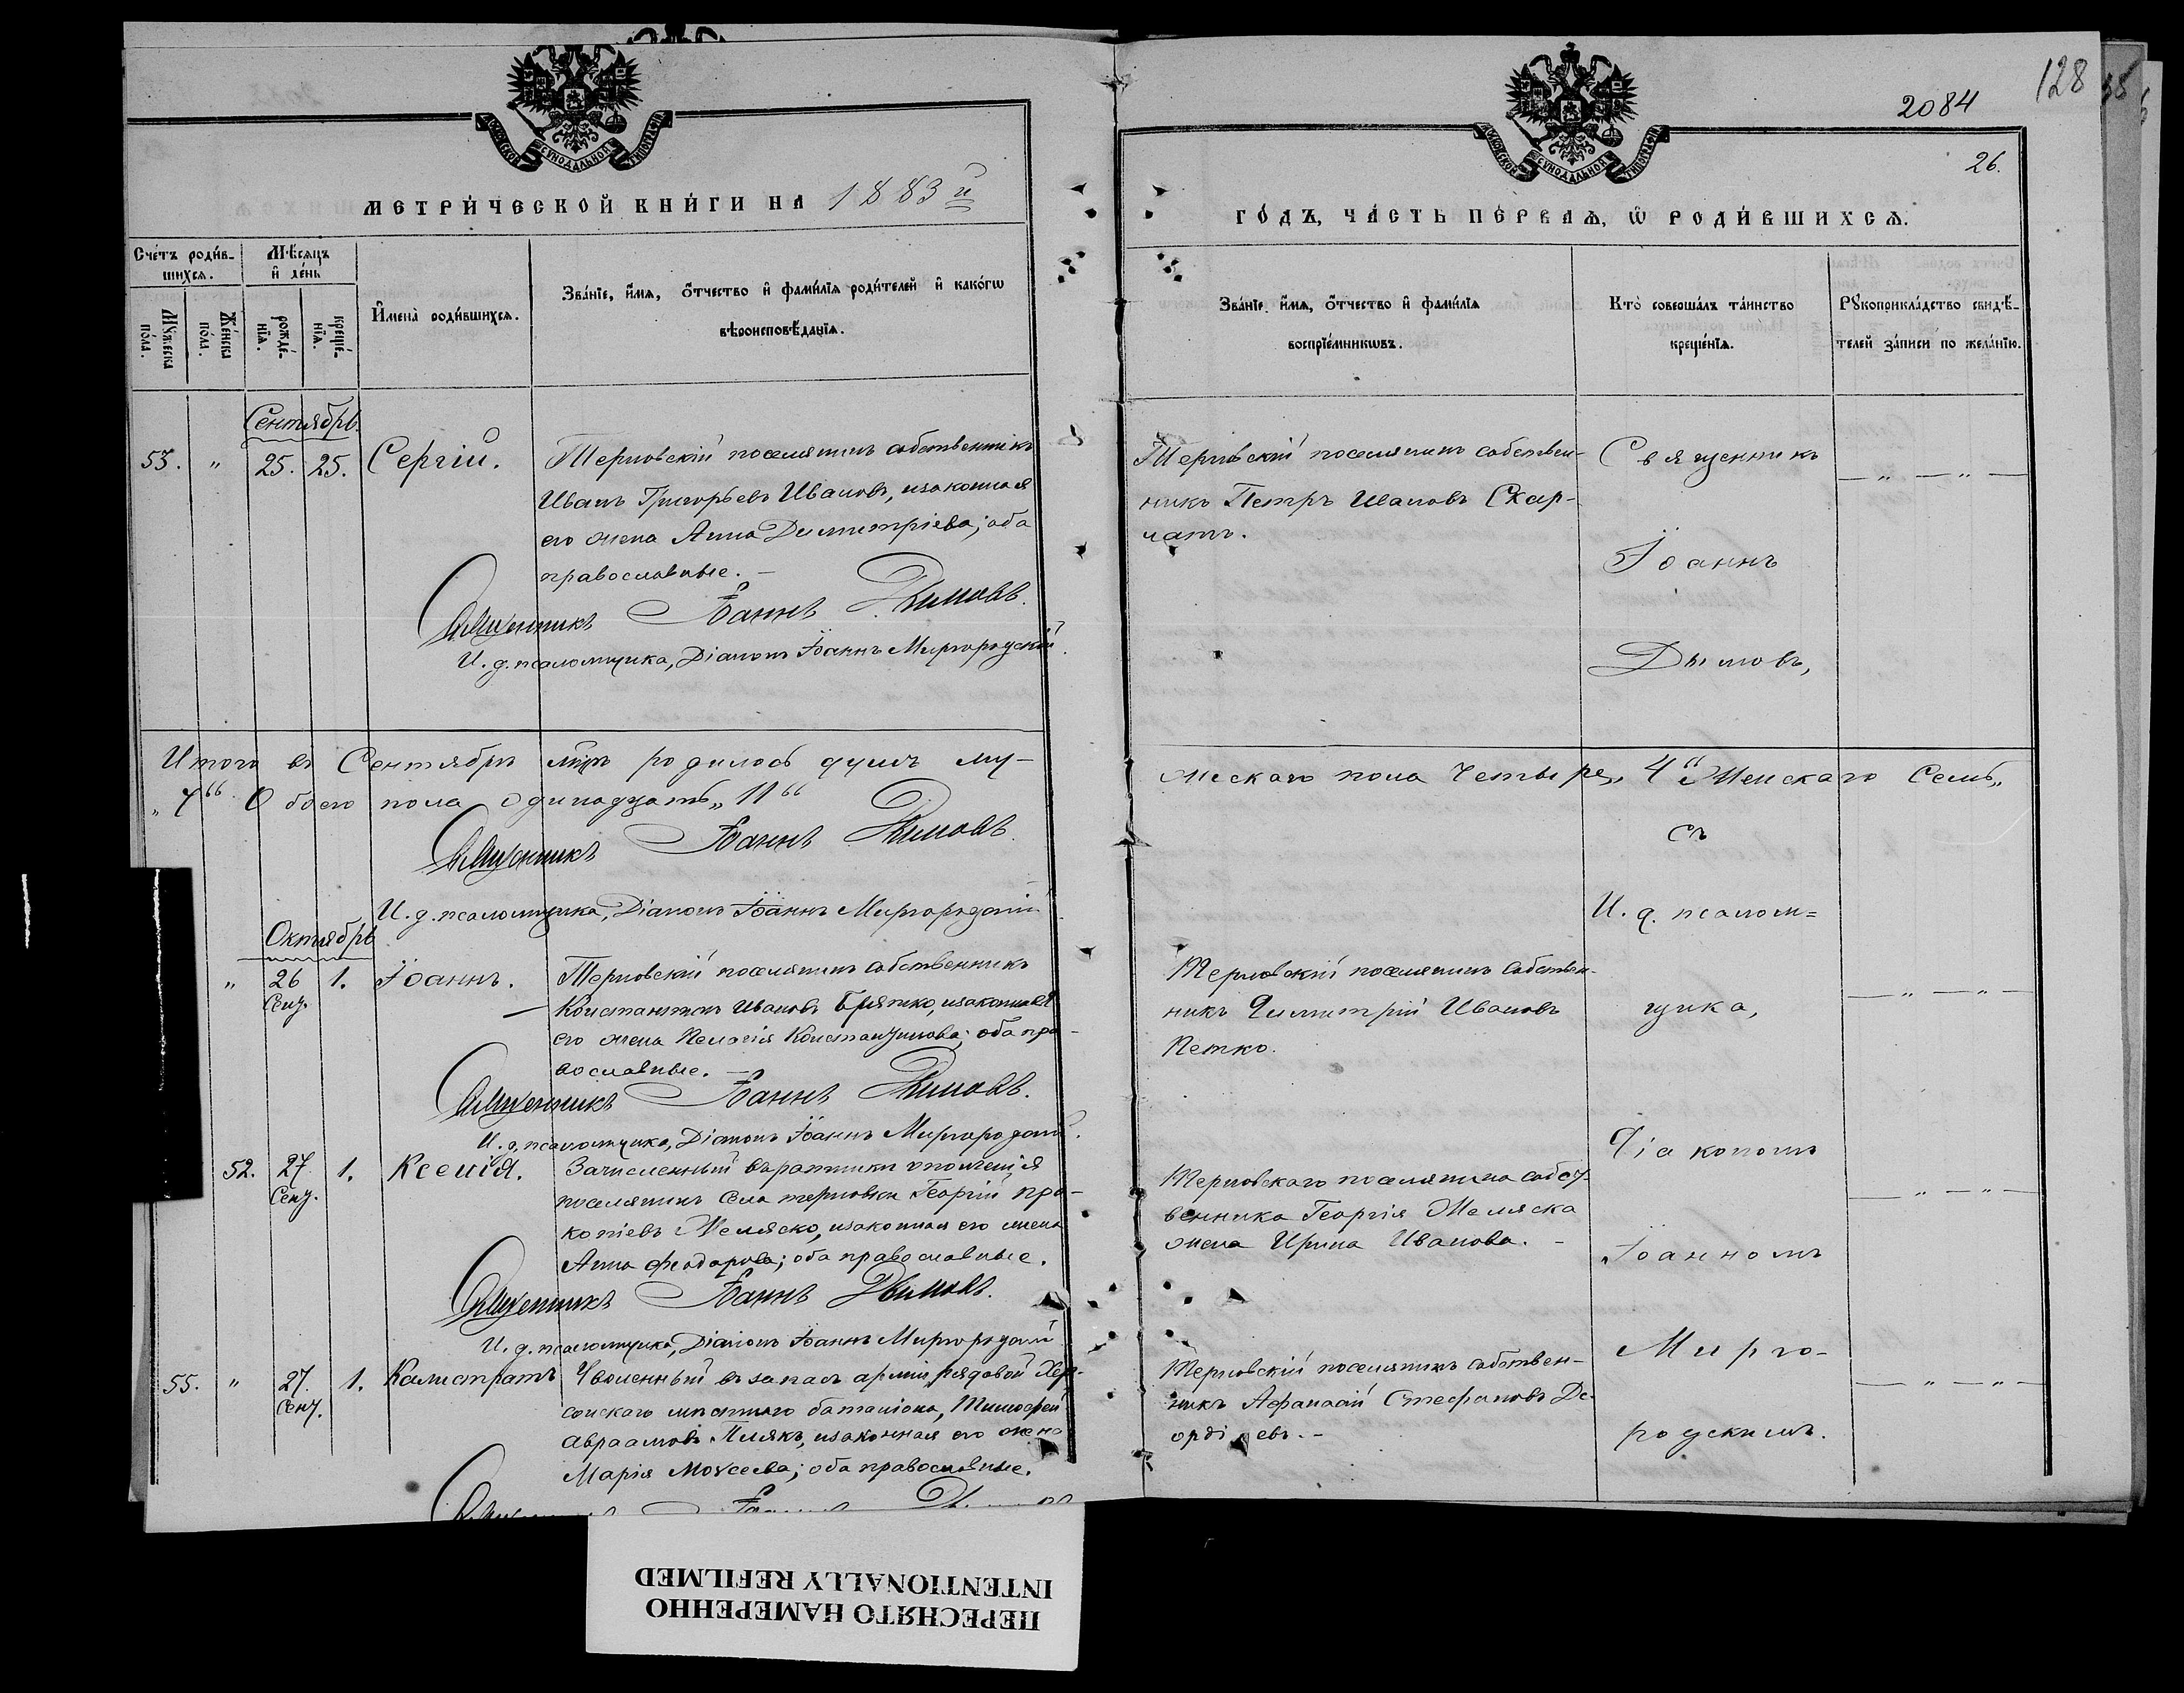 2084
128
26.
МОСКОВСКОЙ СУНОДАЛЬНОЙ ТИПОГРАФІИ
МОСКОВСКОЙ СУНОДАЛЬНОЙ ТИПОГРАФІИ
МЕТРИ́ЧЕСКОЙ КНИ́ГИ НА 1883й
ГО́ДЪ, ЧА́СТЬ ПЕ́РВАѦ, Ѡ РОДИ́ВШИХСѦ.
Сче́тъ роди́в-
шихсѧ.
Мѣ́сѧцъ
и҆ де́нь
Мꙋ́жеска
по́ла.
Же́нска
по́ла.
рожде́-
нїѧ.
креще́-
нїѧ.
И҆мена̀ роди́вшихсѧ.
Зва́нїе, и҆́мѧ, ѻ҆́тчество и҆ фами́лїѧ роди́телей и҆ како́гѡ
вѣроисповѣ́данїѧ.
Зва́нїе, и҆́мѧ, ѻ҆́тчество и҆ фами́лїѧ
воспрїе́мникѡвъ.
Кто̀ соверша́лъ та́инство
креще́нїѧ.
Рꙋкоприкла́дство свидѣ́-
телей за́писи по жела́нїю.
Сентябрь.
53. " 25. 25. Сергій.
Терновскій поселянинъ собственникъ
Иванъ Григорьевъ Ивановъ, изаконная
его жена Анна Димитріева; оба
православные. –
Священникъ Іоаннъ Дымовъ.
И. д. псаломщика, Діаконъ Іоаннъ Миргородскій.
Терновскій поселянинъ собствен-
никъ Петръ Ивановъ Скар-
латъ.
Священникъ
Іоаннъ
Дымовъ,
Итого въ Сентябрѣ мцѣ родилось душъ му-
жескаго пола Четыре „4“ Женскаго Семь „
„7“ Обоего пола одинадцать „11“
Священникъ Іоаннъ Дымовъ
И. д. псаломщика, Діаконъ Іоаннъ Миргородскій
съ
И. д. псалом=
щика,
Діакономъ
Іоанномъ
Мирго-
родскимъ.
Октябрь
" 26 1. Іоаннъ.
Сент.
Терновскій поселянинъ собственникъ
Константинъ Ивановъ изаконная
его жена Пелагія Константинова; оба пра-
вославные. –
Священникъ Іоаннъ Дымовъ.
И. д. псаломщика, Діаконъ Іоаннъ Миргородскій.
Терновскій поселянинъ собствен-
никъ Димитрій Ивановъ
Петко.
52. 27 1. Ксенія.
Сент.
Зачисленный въ ратники ополченія
поселянинъ села терновки Георгій Про-
копіевъ Желяско, изаконная его жена
Анна Феодорова; оба православные.
Священникъ Іоаннъ Дымовъ.
И. д. псаломщика, Діаконъ Іоаннъ Миргородскій
Терновскаго поселянина собст-
венника Георгія Желяска
жена Ирина Иванова. –
55. " 27. 1. Калистратъ
Сент.
Уволенный въ запасъ арміи рядовой Хер-
сонскаго мѣстнаго баталіона, Тимофей
Авраамовъ изаконная его жена
Марія Моѵсеева; оба православные.
Терновскій поселянинъ собствен-
никъ Афанасій Стефановъ Де-
ордіевъ. –
ПЕРЕСНЯТО НАМЕРЕННО
INTENTIONALLY REFILMED